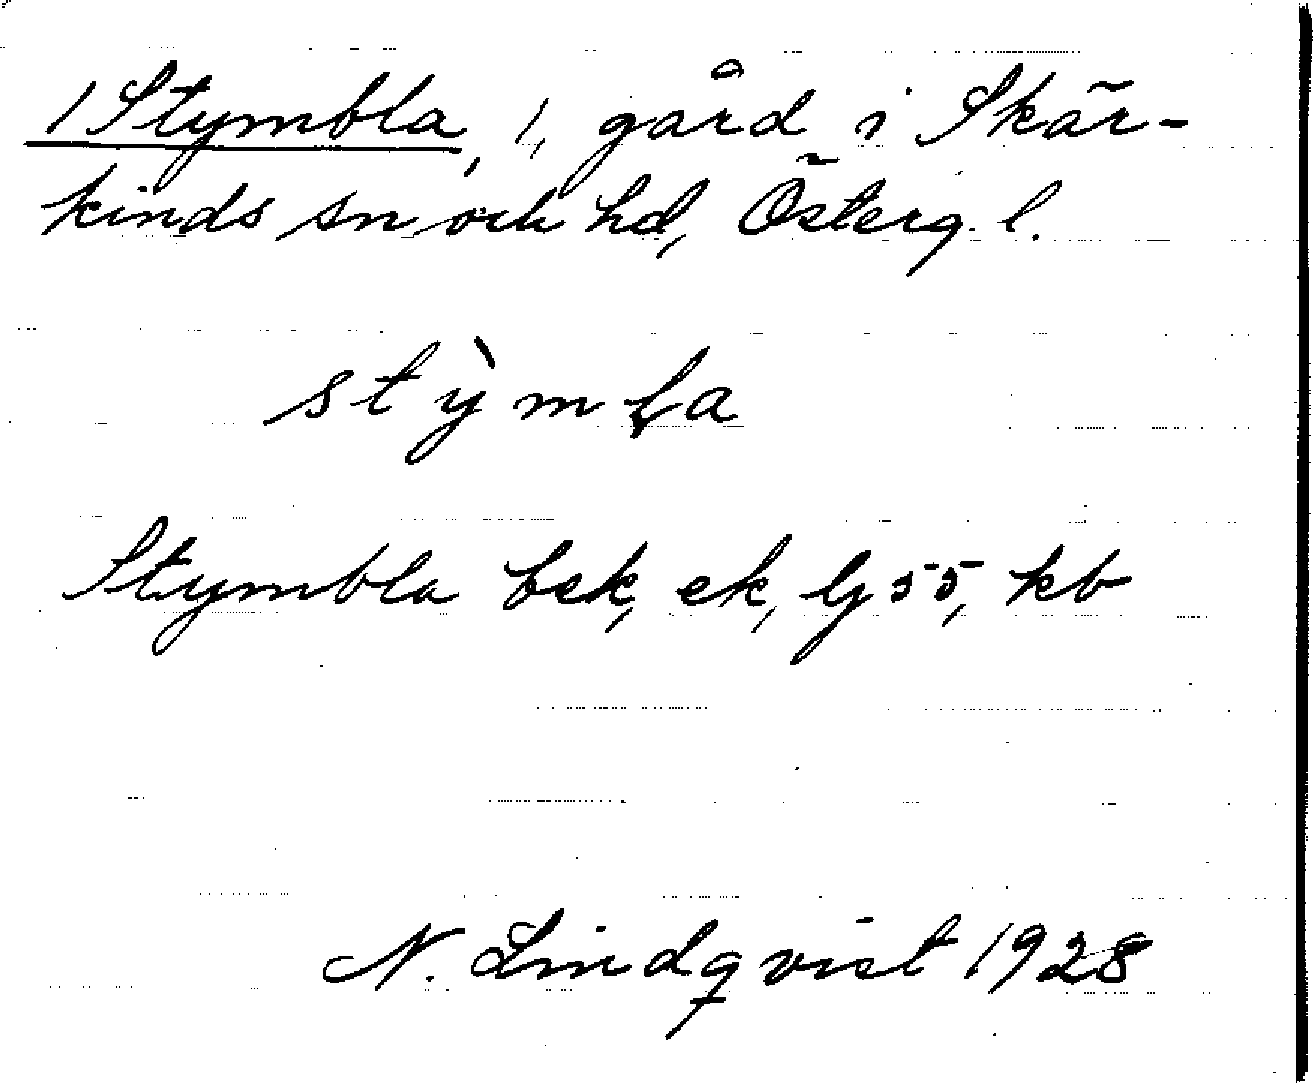 1 Stymbla, 1, gård i Skär-
kinds sn och hd, Österg. l.
stỳmɫa
Stymbla bek, ek, lj 55, kb
N. Lindqvist 1928